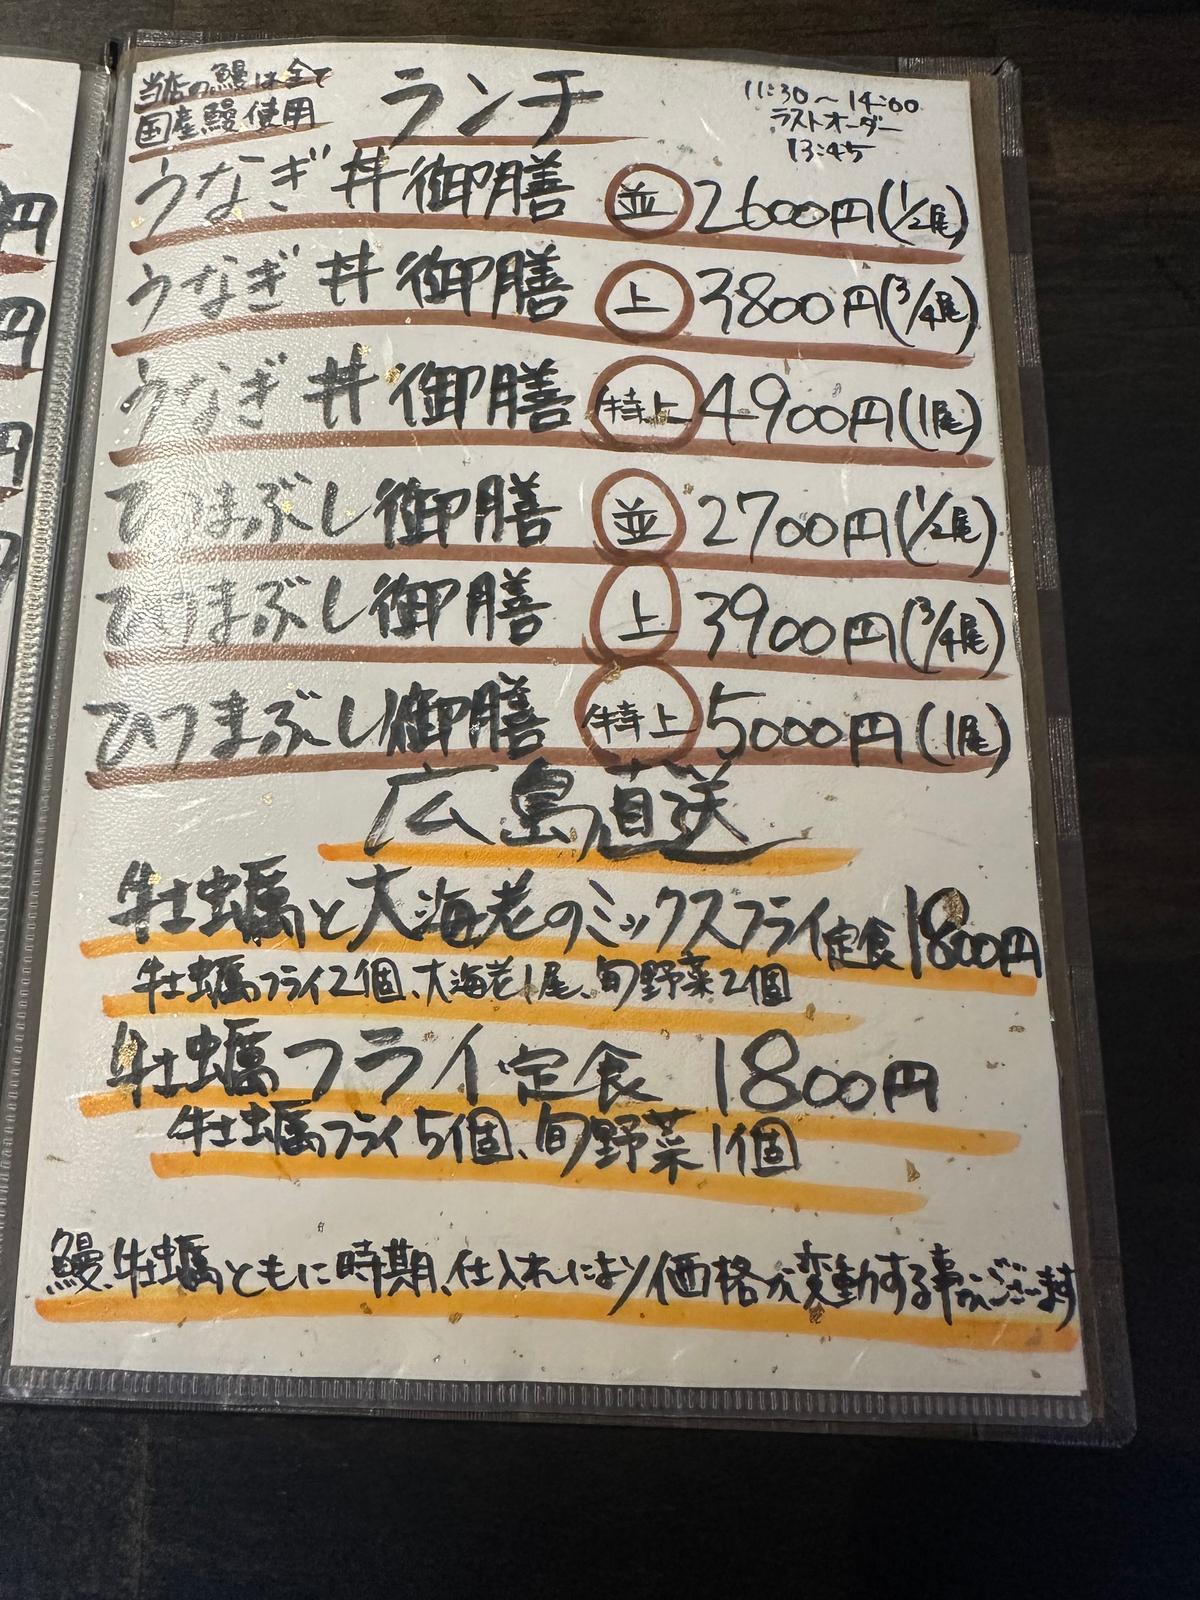 当店の鰻は全て
国産鰻使用
ランチ
11:30〜14:00
ラストオーダー
13:45
うなぎ丼御膳 並 2600円(1/2尾)
うなぎ丼御膳 上 3800円(3/4尾)
うなぎ丼御膳 特上 4900円(1尾)
ひつまぶし御膳 並 2700円(1/2尾)
ひつまぶし御膳 上 3900円(3/4尾)
ひつまぶし御膳 特上 5000円(1尾)
広島直送
牡蠣と大海老のミックスフライ定食 1800円
牡蠣フライ2個、大海老1尾、旬野菜2個
牡蠣フライ定食 1800円
牡蠣フライ5個、旬野菜1個
鰻、牡蠣ともに時期、仕入れにより価格が変動する事がございます
円
円
円